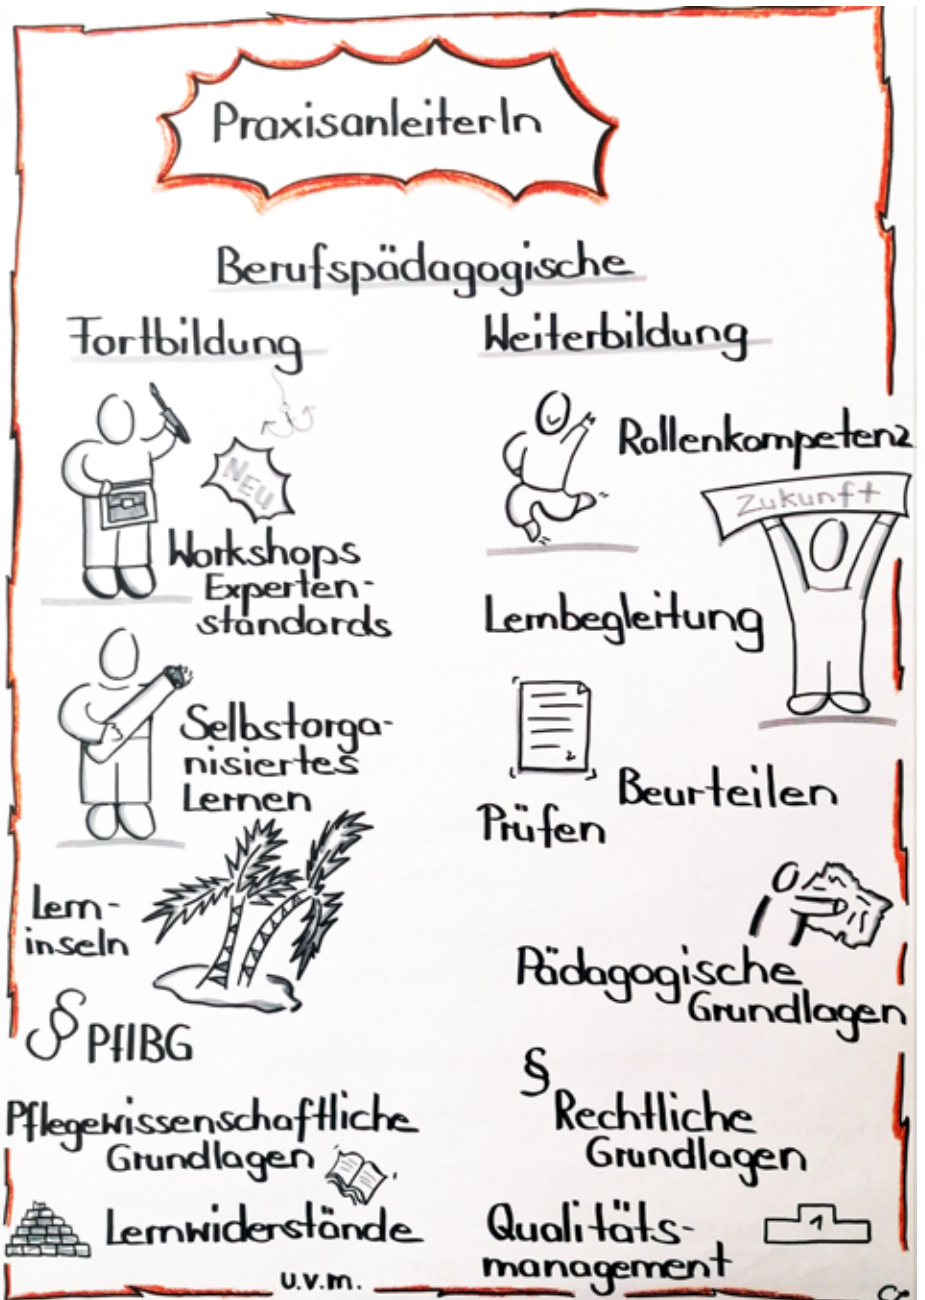 PraxisanleiterIn
Berufspädagogische
Fortbildung
NEU
Workshops
Experten-
standards
Selbstorga-
nisiertes
Lernen
Lern-
inseln
§ PflBG
Pflegewissenschaftliche
Grundlagen
Lernwiderstände
Weiterbildung
Rollenkompetenz
Zukunft
Lernbegleitung
Prüfen
Beurteilen
Pädagogische
Grundlagen
§
Rechtliche
Grundlagen
Qualitäts-
management
1
u.v.m.